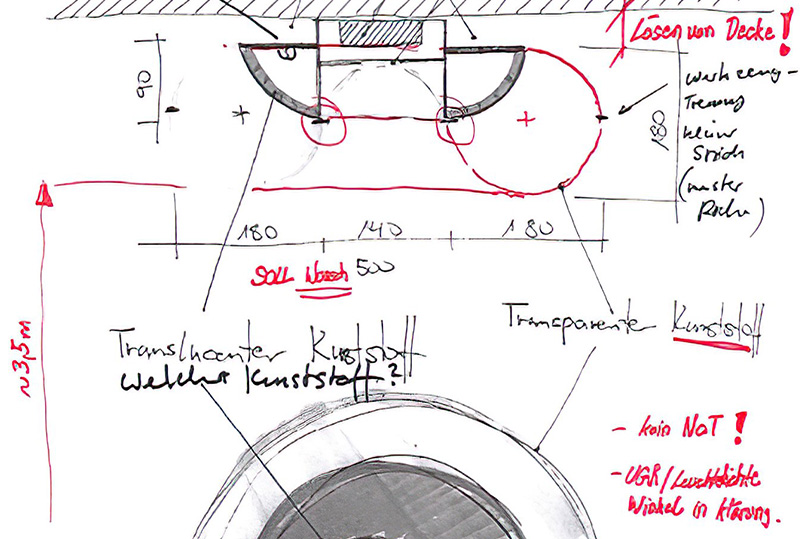 Lösen von Decke!
90
Werkzeug-
Trennung
kleiner
Strich
(
)
180
180 140 180
SOLL Wunsch 500
~3,5m
Transparenter Kunststoff
Translucenter Kunststoff
welcher Kunststoff?
- kein NOT!
- UGR/Leuchtdichte
Winkel in Klärung.